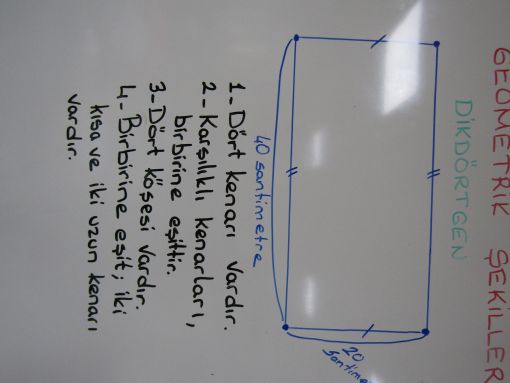 GEOMETRİK ŞEKİLLER
DİKDÖRTGEN
20
40 santimetre
1- Dört kenarı vardır.
2- Karşılıklı kenarları,
birbirine eşittir.
3- Dört köşesi vardır.
4- Birbirine eşit; iki
kısa ve iki uzun kenarı
vardır.